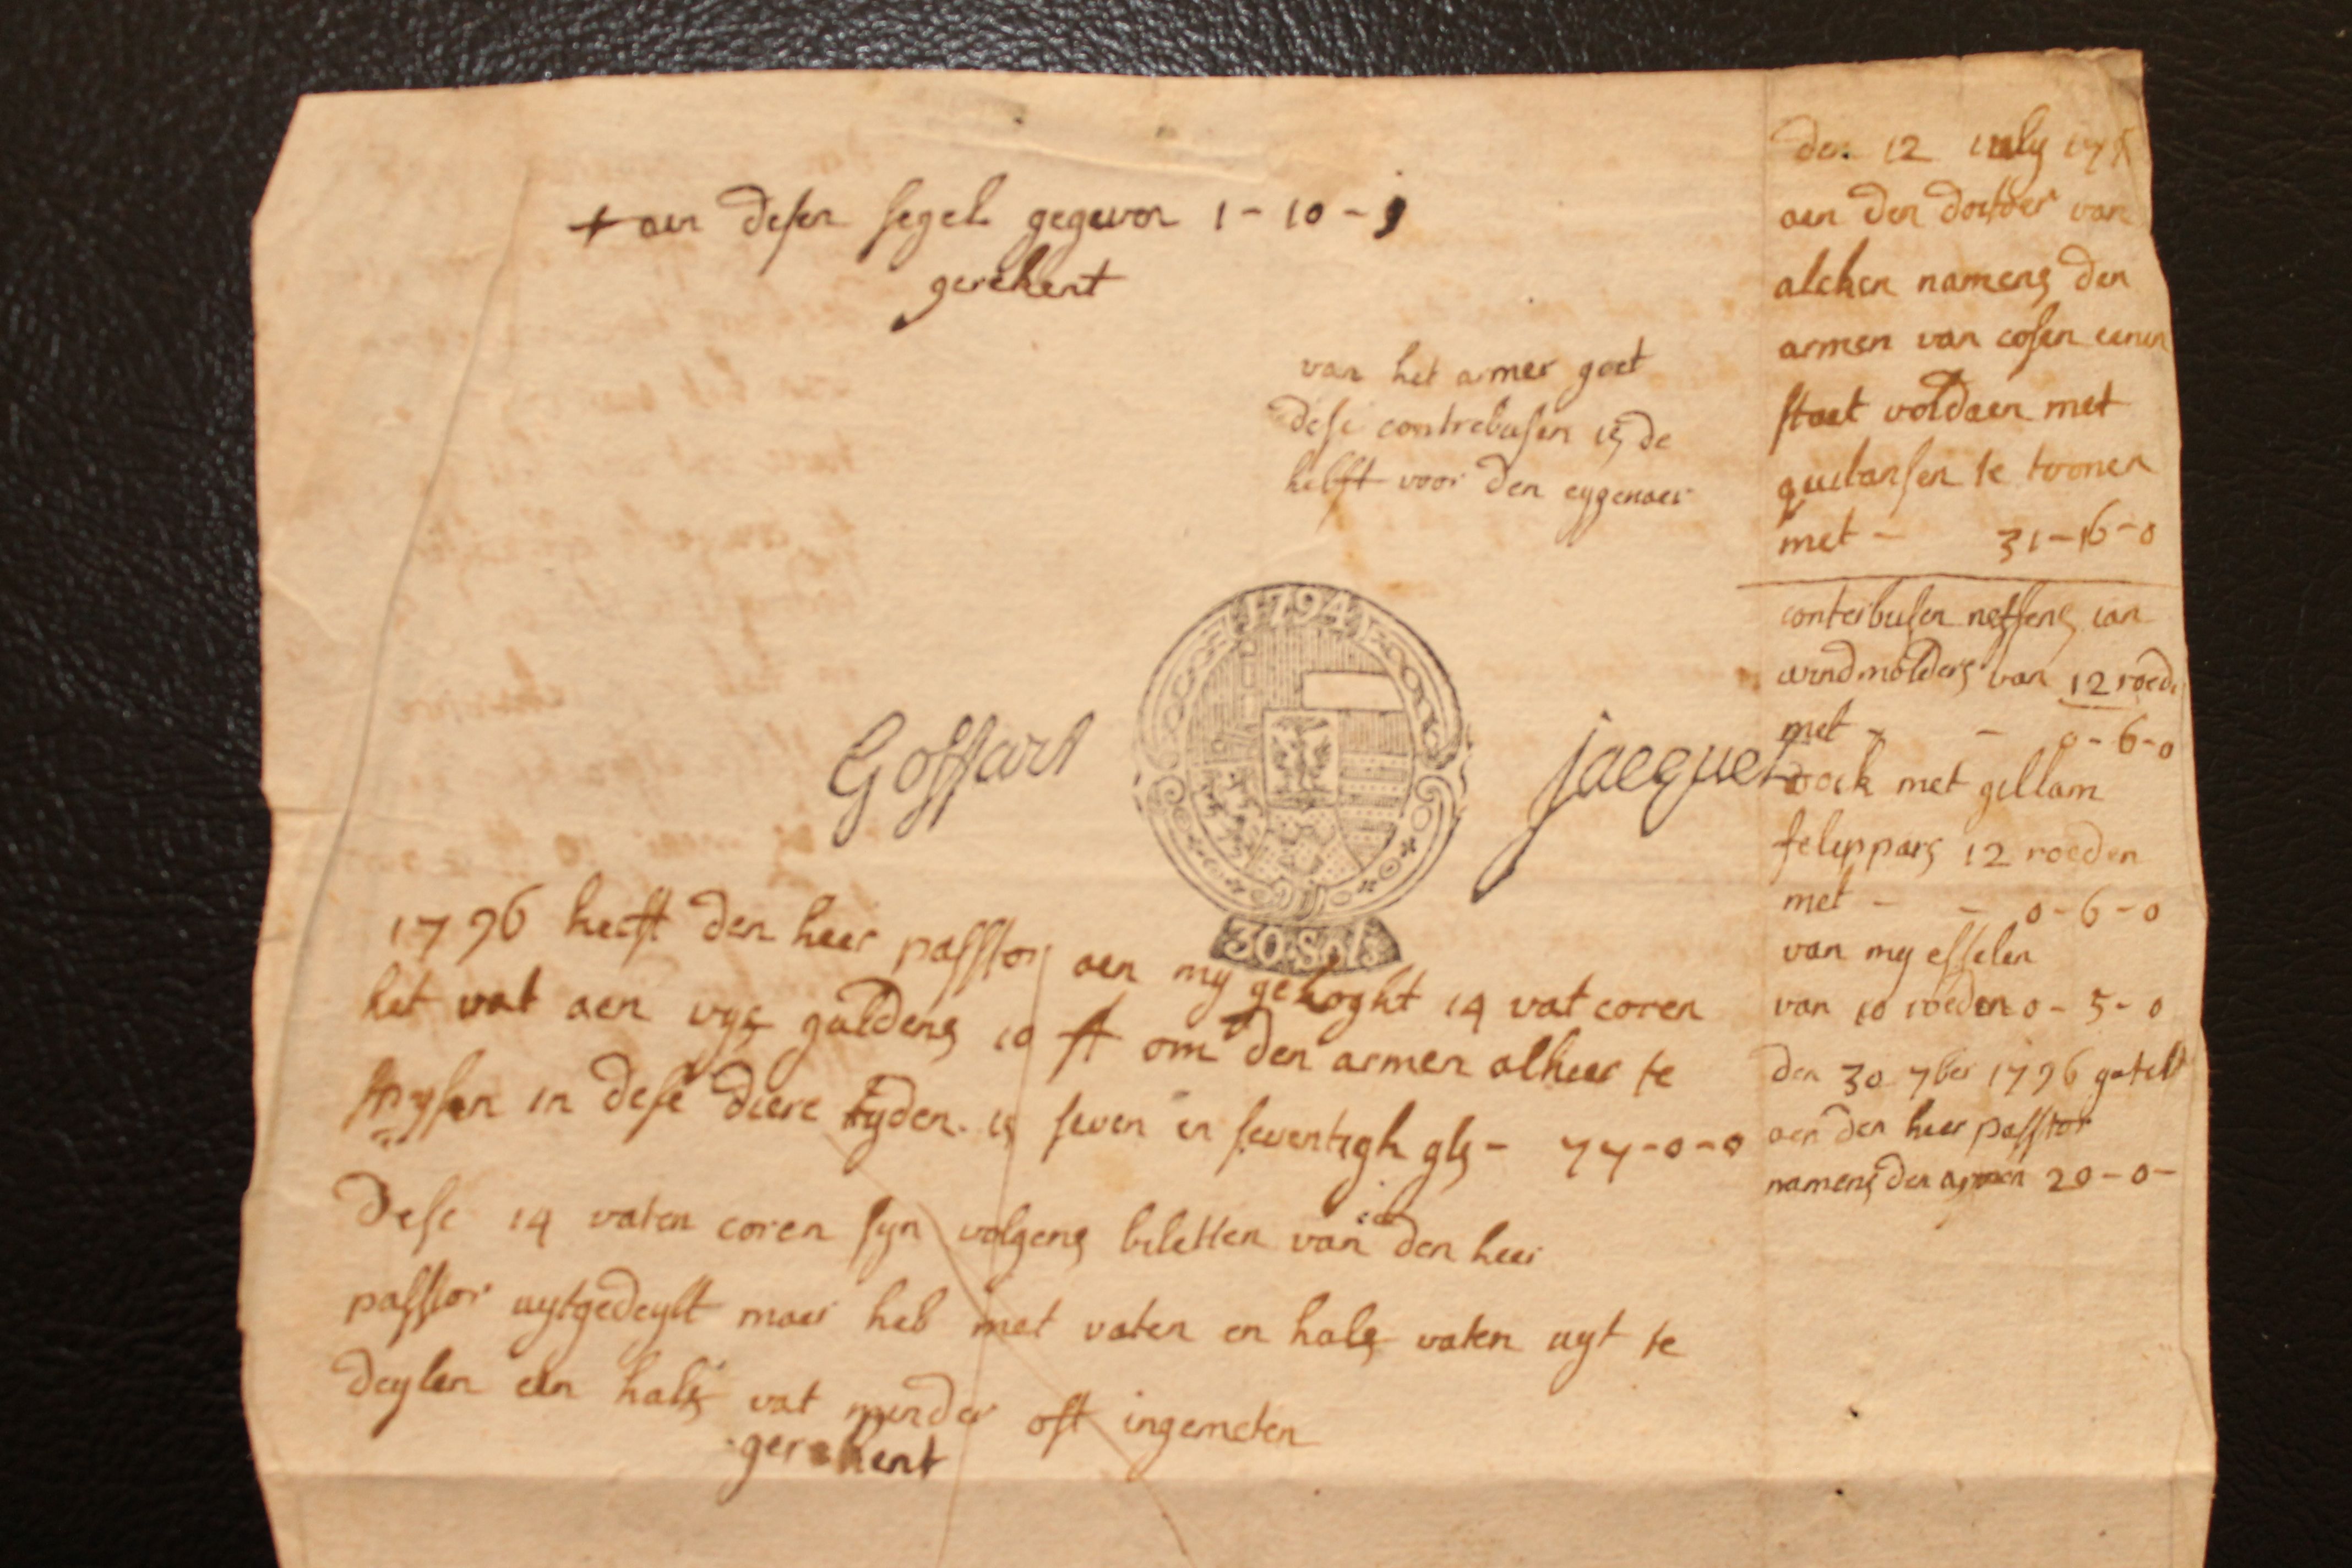 + aen desen segel gegeven 1 - 10 -
gerekent
van het armer goet
dese contrebusen is de
helft voor den eygenaer
1794
Goffart
jacquet
30·Sols
1796 heeft den heer passtor aen my gekoght 14 vat coren
het vat aen vyf guldens 10 st om den armen alhier te
spysen in dese diere tyden. is seven en seventigh gls - 77-0-0
Dese 14 vaten coren syn volgens biletten van den heer
passtor uytgedeylt maer heb met vaten en half vaten uyt te
deylen een half vat minder oft ingemeten
gerekent
den 12 iuly
aen den docktoer van
alcken namens den
armen van cosen eenen
staet voldaen met
quitansen te toonen
met - 31-16-0
conterbusen neffens ian
windmolders van 12 roeden
met - - 0-6-0
oock met gillam
felippars 12 roeden
met - - 0-6-0
van my esselen
van 10 roeden 0-5-0
den 30 7ber 1796 getelt
aen den heer passtor
namens den armen 20-0-